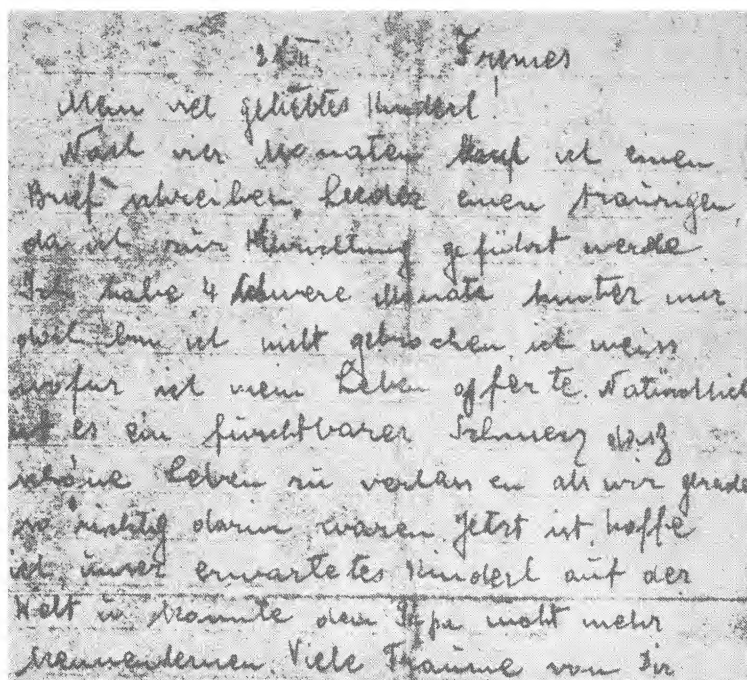 Mein viel geliebtes Kinderl!
Nach vier Monaten darf ich einen
Brief schreiben, Leider einen traurigen,
da ich zur Hinrichtung geführt werde.
Ich habe 4 schwere Monate hinter mir
doch bin ich nicht gebrochen, ich weiss
wofür ich mein Leben opferte. Natürlich
ist es ein fürchtbarer Schmerz das
schöne Leben zu verlassen als wir gerade
so richtig darin waren. Jetzt ist, hoffe
ich, unser erwartetes Kinderl auf der
Welt u. konnte den Papa nicht mehr
kennenlernen. Viele Träume von Dir